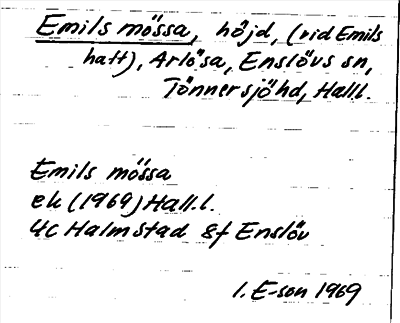 Emils mössa, höjd, (vid Emils
hatt), Arlösa, Enslövs sn,
Tönnersjöhd, Hall.
Emils mössa
ek (1969) Hall.l.
4c Halmstad 8f Enslöv
I. E-son 1969